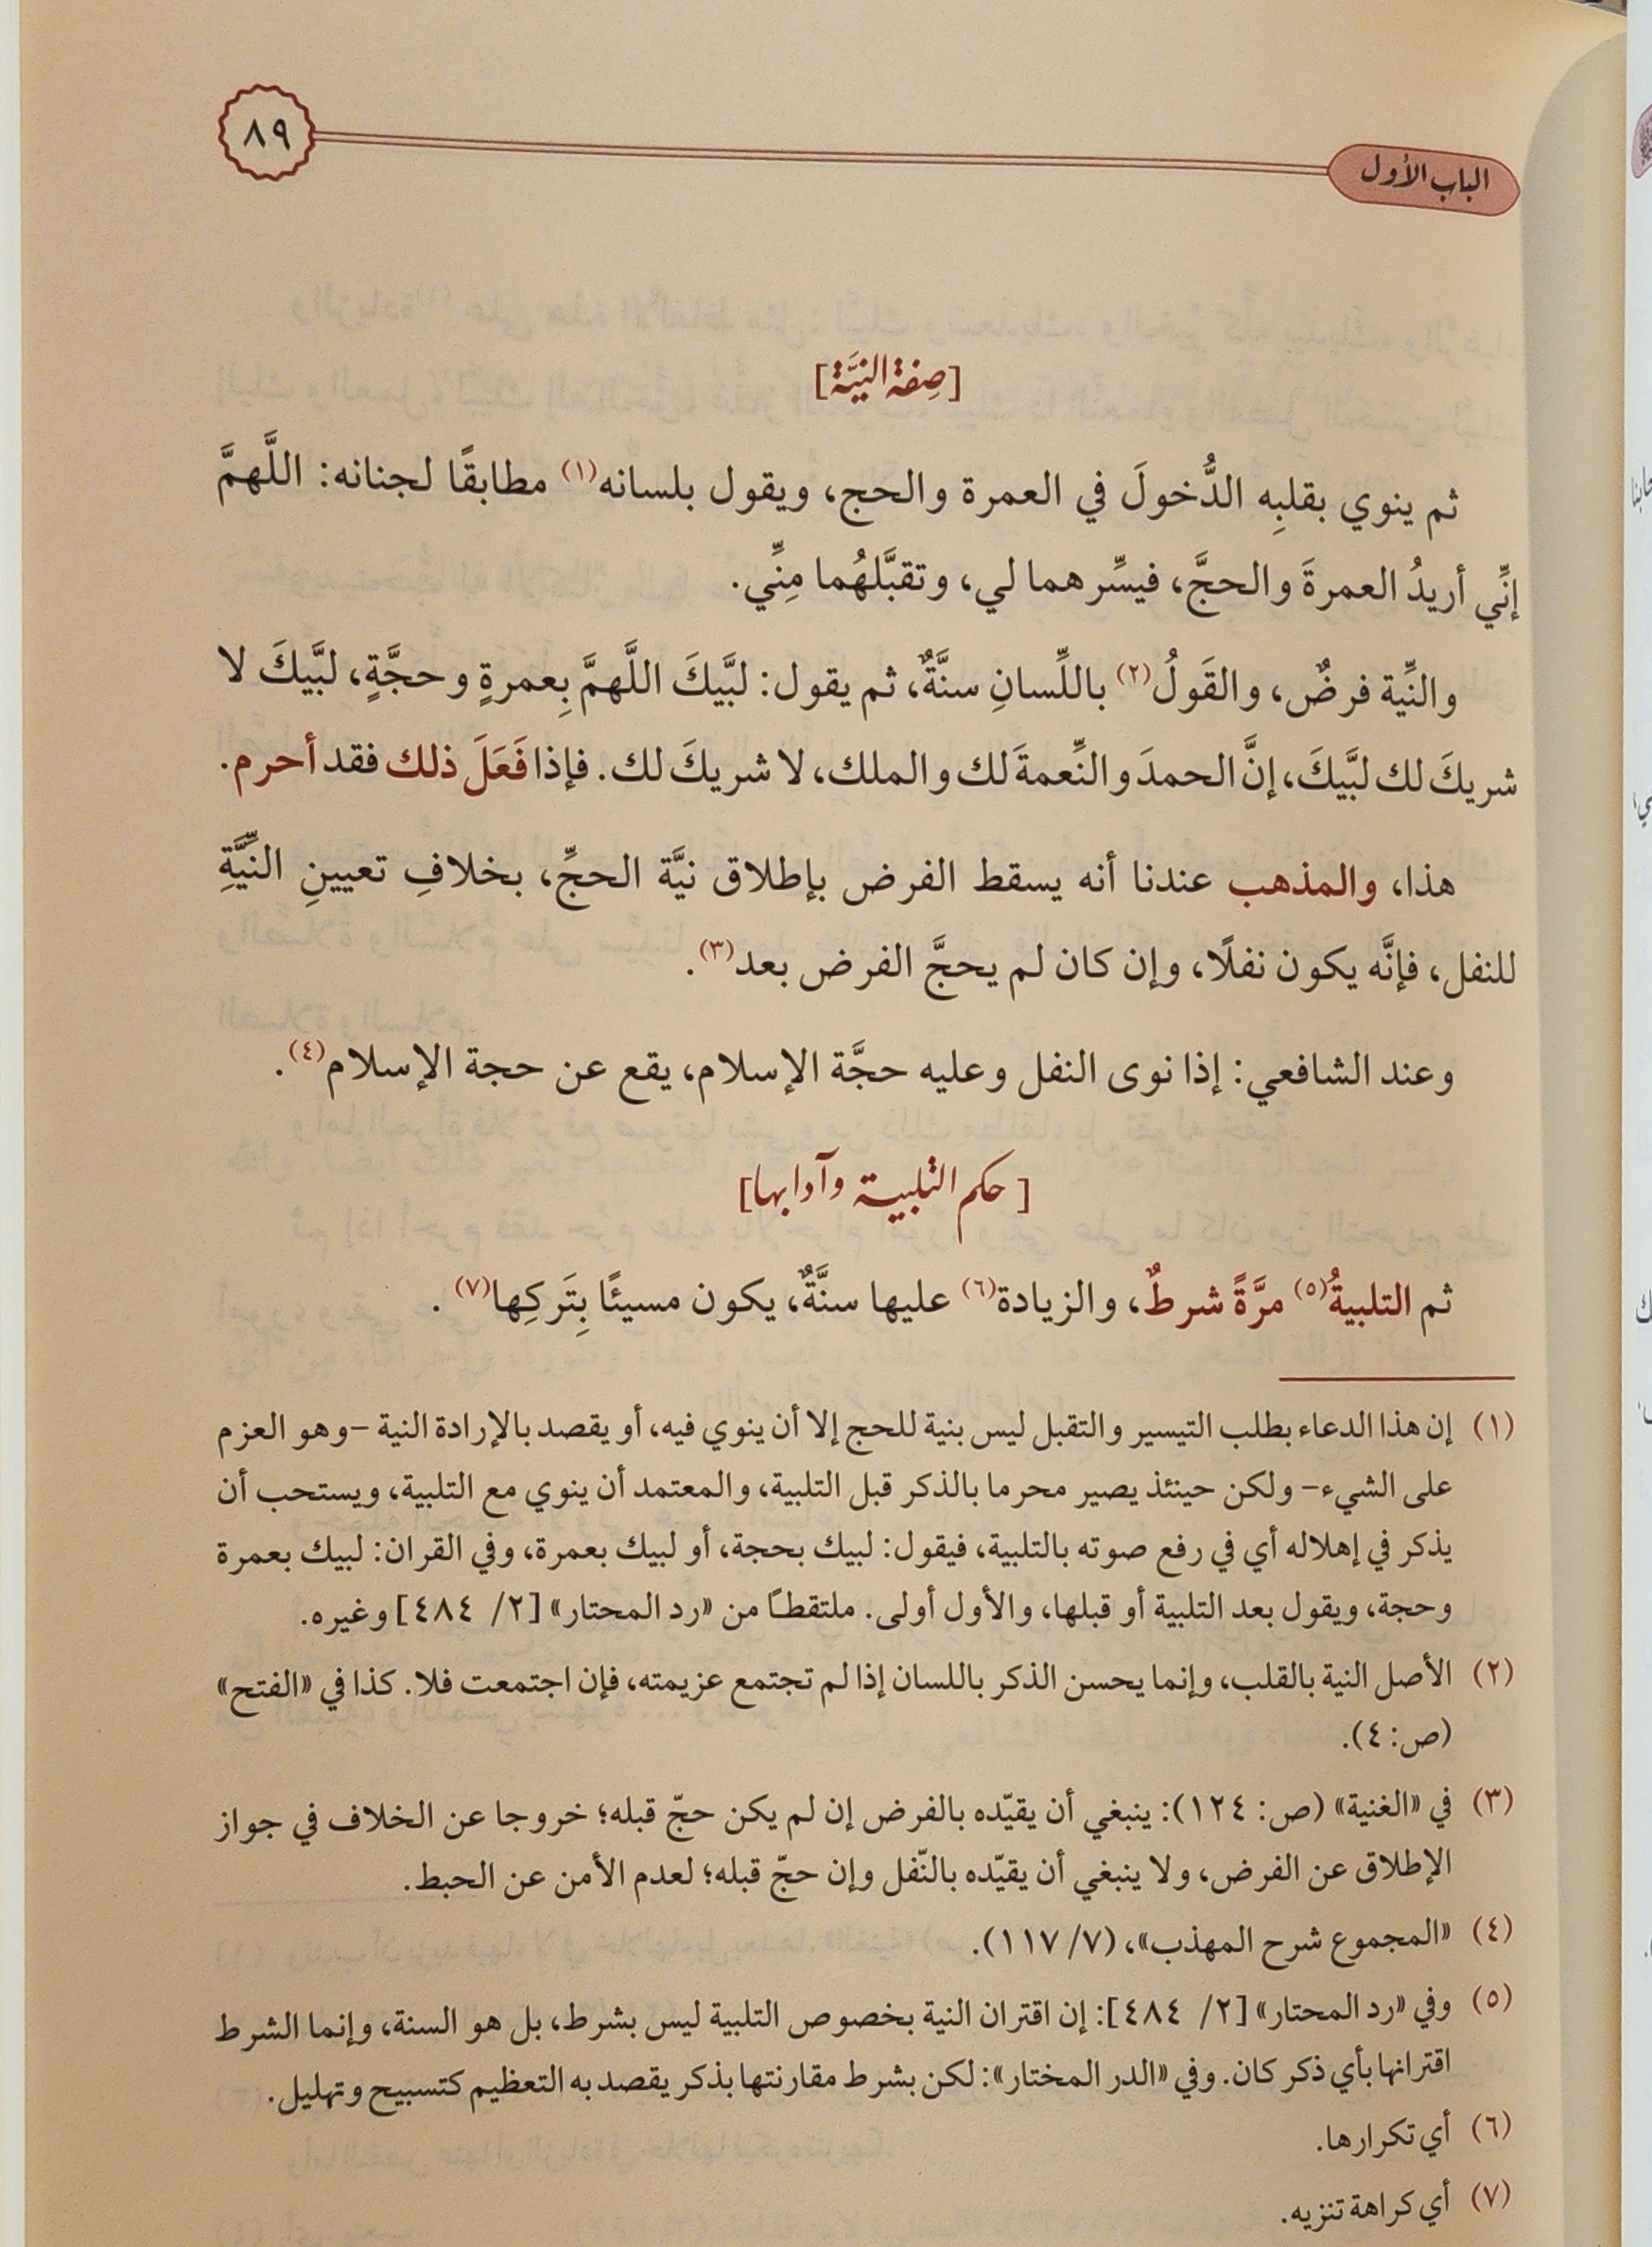 الباب الأول
٨٩
[صِفة النيَّة]
ثم ينوي بقلبِه الدُّخولَ في العمرة والحج، ويقول بلسانه(١) مطابقًا لجنانه: اللَّهمَّ
إنِّي أريدُ العمرةَ والحجَّ، فيسِّرهما لي، وتقبَّلهُما مِنِّي.
والنِّية فرضٌ، والقَولُ(٢) باللِّسانِ سنَّةٌ، ثم يقول: لبَّيكَ اللَّهمَّ بِعمرةٍ وحجَّةٍ، لبَّيكَ لا
شريكَ لك لبَّيكَ، إنَّ الحمدَ والنِّعمةَ لك والملك، لا شريكَ لك. فإذا فَعَلَ ذلك فقد أحرم.
هذا، والمذهب عندنا أنه يسقط الفرض بإطلاق نيَّة الحجِّ، بخلافِ تعيينِ النِّيَّةِ
للنفل، فإنَّه يكون نفلًا، وإن كان لم يحجَّ الفرض بعد(٣).
وعند الشافعي: إذا نوى النفل وعليه حجَّة الإسلام، يقع عن حجة الإسلام(٤).
[حكم التلبية وآدابها]
ثم التلبيةُ(٥) مرَّةً شرطٌ، والزيادة(٦) عليها سنَّةٌ، يكون مسيئًا بِتَركِها(٧).
(١) إن هذا الدعاء بطلب التيسير والتقبل ليس بنية للحج إلا أن ينوي فيه، أو يقصد بالإرادة النية -وهو العزم
على الشيء- ولكن حينئذ يصير محرما بالذكر قبل التلبية، والمعتمد أن ينوي مع التلبية، ويستحب أن
يذكر في إهلاله أي في رفع صوته بالتلبية، فيقول: لبيك بحجة، أو لبيك بعمرة، وفي القران: لبيك بعمرة
وحجة، ويقول بعد التلبية أو قبلها، والأول أولى. ملتقطًا من «رد المحتار» [٢/ ٤٨٤] وغيره.
(٢) الأصل النية بالقلب، وإنما يحسن الذكر باللسان إذا لم تجتمع عزيمته، فإن اجتمعت فلا. كذا في «الفتح»
(ص: ٤).
(٣) في «الغنية» (ص: ١٢٤): ينبغي أن يقيّده بالفرض إن لم يكن حجّ قبله؛ خروجا عن الخلاف في جواز
الإطلاق عن الفرض، ولا ينبغي أن يقيّده بالنّفل وإن حجّ قبله؛ لعدم الأمن عن الحبط.
(٤) «المجموع شرح المهذب»، (٧/ ١١٧).
(٥) وفي «رد المحتار» [٢/ ٤٨٤]: إن اقتران النية بخصوص التلبية ليس بشرط، بل هو السنة، وإنما الشرط
اقترانها بأي ذكر كان. وفي «الدر المختار»: لكن بشرط مقارنتها بذكر يقصد به التعظيم كتسبيح وتهليل.
(٦) أي تكرارها.
(٧) أي كراهة تنزيه.